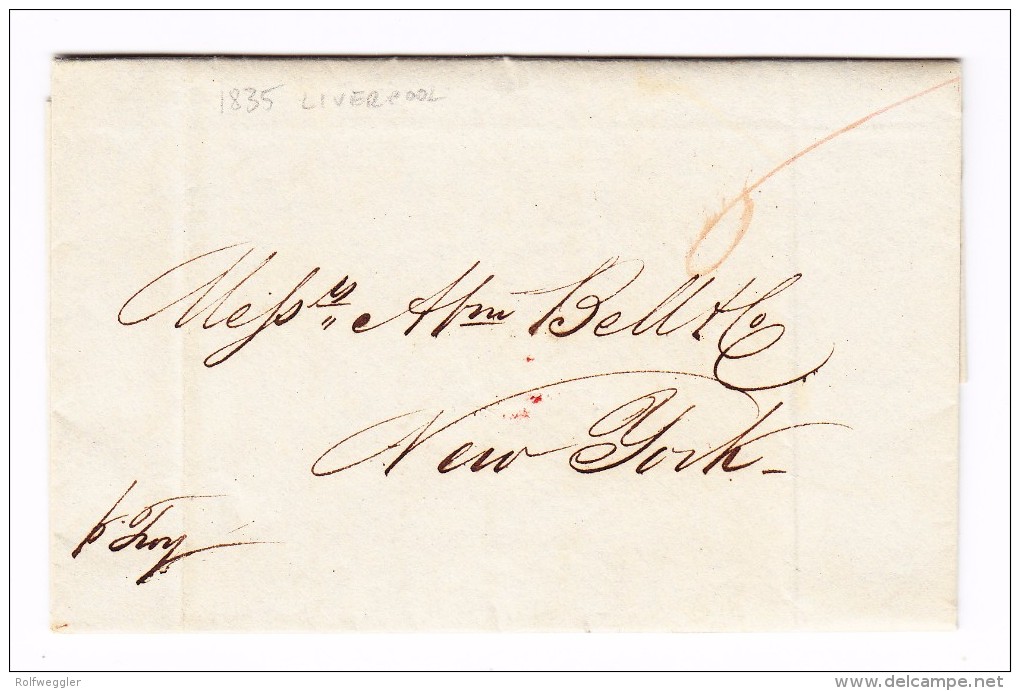 1835 LIVERPOOL
6
Messrs Abm Bell & Co
New York
p. Troy
Rolfweggler
delcampe.net